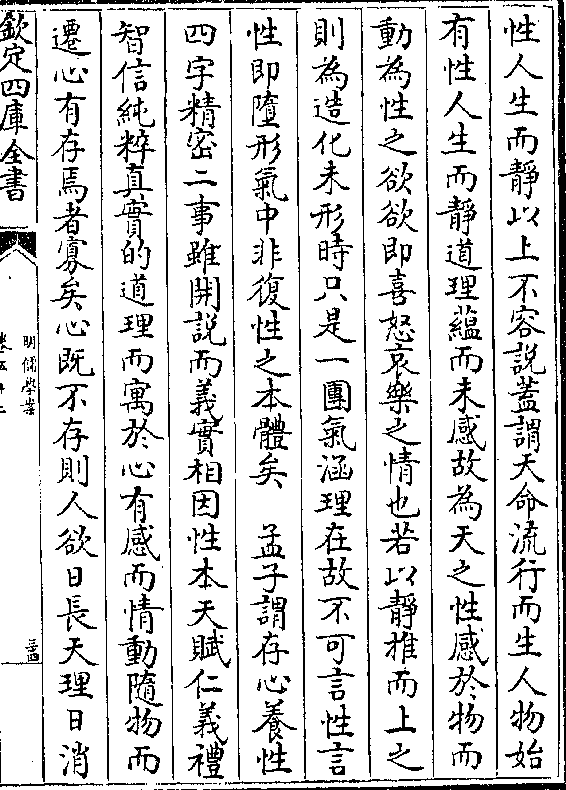 性人生而靜以上不容說蓋謂天命流行而生人物始
有性人生而靜道理蘊而未感故為天之性感於物而
動為性之欲欲即喜怒哀樂之情也若以靜推而上之
則為造化未形時只是一團氣涵理在故不可言性言
性即墮形氣中非復性之本體矣　孟子謂存心養性
四字精密二事雖開說而義實相因性本天賦仁義禮
智信純粹真實的道理而寓於心有感而情動隨物而
遷心有存焉者寡矣心既不存則人欲日長天理日消
欽定四庫全書
明儒學案